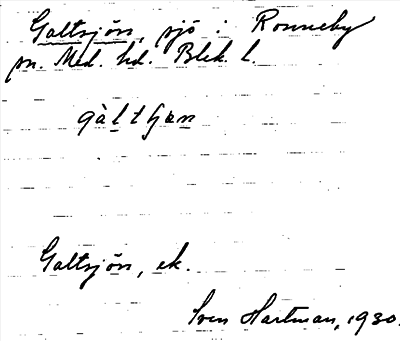 Galtsjön, sjö i Ronneby
sn. Med. hd. Blek. l.
gàltʃɷn
Galtsjön, ek.
Sven Hartman, 1930.